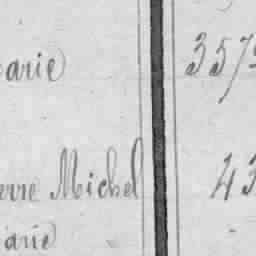 arie 357
erre Michel 43
arie